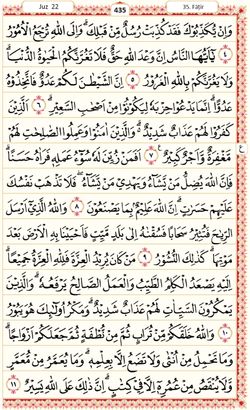 Juz 22
435
35. Fāṭir
وَإِنْ يُكَذِّبُوكَ فَقَدْ كُذِّبَتْ رُسُلٌ مِنْ قَبْلِكَ ۚ وَإِلَى اللَّهِ تُرْجَعُ الْأُمُورُ
٤ يَٰٓأَيُّهَا النَّاسُ إِنَّ وَعْدَ اللَّهِ حَقٌّ فَلَا تَغُرَّنَّكُمُ الْحَيَوٰةُ الدُّنْيَا ۗ
وَلَا يَغُرَّنَّكُمْ بِاللَّهِ الْغَرُورُ ٥ إِنَّ الشَّيْطَٰنَ لَكُمْ عَدُوٌّ فَاتَّخِذُوهُ
عَدُوًّا ۚ إِنَّمَا يَدْعُوا حِزْبَهُ لِيَكُونُوا مِنْ أَصْحَٰبِ السَّعِيرِ ٦ الَّذِينَ
كَفَرُوا لَهُمْ عَذَابٌ شَدِيدٌ ۖ وَالَّذِينَ آمَنُوا وَعَمِلُوا الصَّٰلِحَٰتِ لَهُمْ
مَغْفِرَةٌ وَأَجْرٌ كَبِيرٌ ٧ أَفَمَنْ زُيِّنَ لَهُ سُوٓءُ عَمَلِهِ فَرَءَاهُ حَسَنًا ۖ
فَإِنَّ اللَّهَ يُضِلُّ مَنْ يَشَآءُ وَيَهْدِي مَنْ يَشَآءُ ۖ فَلَا تَذْهَبْ نَفْسُكَ
عَلَيْهِمْ حَسَرَٰتٍ ۚ إِنَّ اللَّهَ عَلِيمٌ بِمَا يَصْنَعُونَ ٨ وَاللَّهُ الَّذِي أَرْسَلَ
الرِّيَٰحَ فَتُثِيرُ سَحَابًا فَسُقْنَٰهُ إِلَىٰ بَلَدٍ مَيِّتٍ فَأَحْيَيْنَا بِهِ الْأَرْضَ بَعْدَ
مَوْتِهَا ۚ كَذَٰلِكَ النُّشُورُ ٩ مَنْ كَانَ يُرِيدُ الْعِزَّةَ فَلِلَّهِ الْعِزَّةُ جَمِيعًا ۚ
إِلَيْهِ يَصْعَدُ الْكَلِمُ الطَّيِّبُ وَالْعَمَلُ الصَّٰلِحُ يَرْفَعُهُ ۚ وَالَّذِينَ
يَمْكُرُونَ السَّيِّـَٔاتِ لَهُمْ عَذَابٌ شَدِيدٌ ۖ وَمَكْرُ أُولَٰٓئِكَ هُوَ يَبُورُ
١٠ وَاللَّهُ خَلَقَكُمْ مِنْ تُرَابٍ ثُمَّ مِنْ نُطْفَةٍ ثُمَّ جَعَلَكُمْ أَزْوَٰجًا ۚ
وَمَا تَحْمِلُ مِنْ أُنْثَىٰ وَلَا تَضَعُ إِلَّا بِعِلْمِهِ ۚ وَمَا يُعَمَّرُ مِنْ مُعَمَّرٍ
وَلَا يُنْقَصُ مِنْ عُمُرِهِ إِلَّا فِي كِتَٰبٍ ۚ إِنَّ ذَٰلِكَ عَلَى اللَّهِ يَسِيرٌ ١١